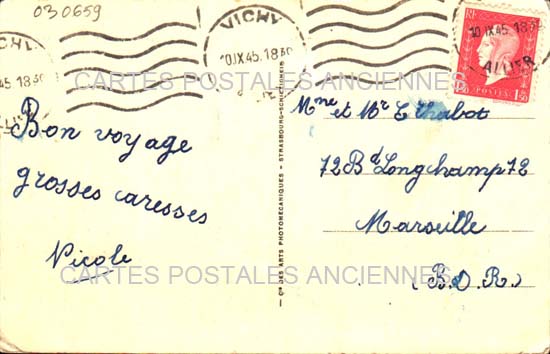 030659
VICHY
10.IX 45. 18 30
ALLIER
RF
1F50 POSTES 1F50
CARTES POSTALES ANCIENNES
Bon voyage
grosses caresses
Nicole
Cie DES ARTS PHOTOMECANIQUES - STRASBOURG-SCHILTIGHEIM
Mme et Mr E Chabot
72 Bd Longchamp 72
Marseille
(B.D.R.)
CARTES POSTALES ANCIENNES